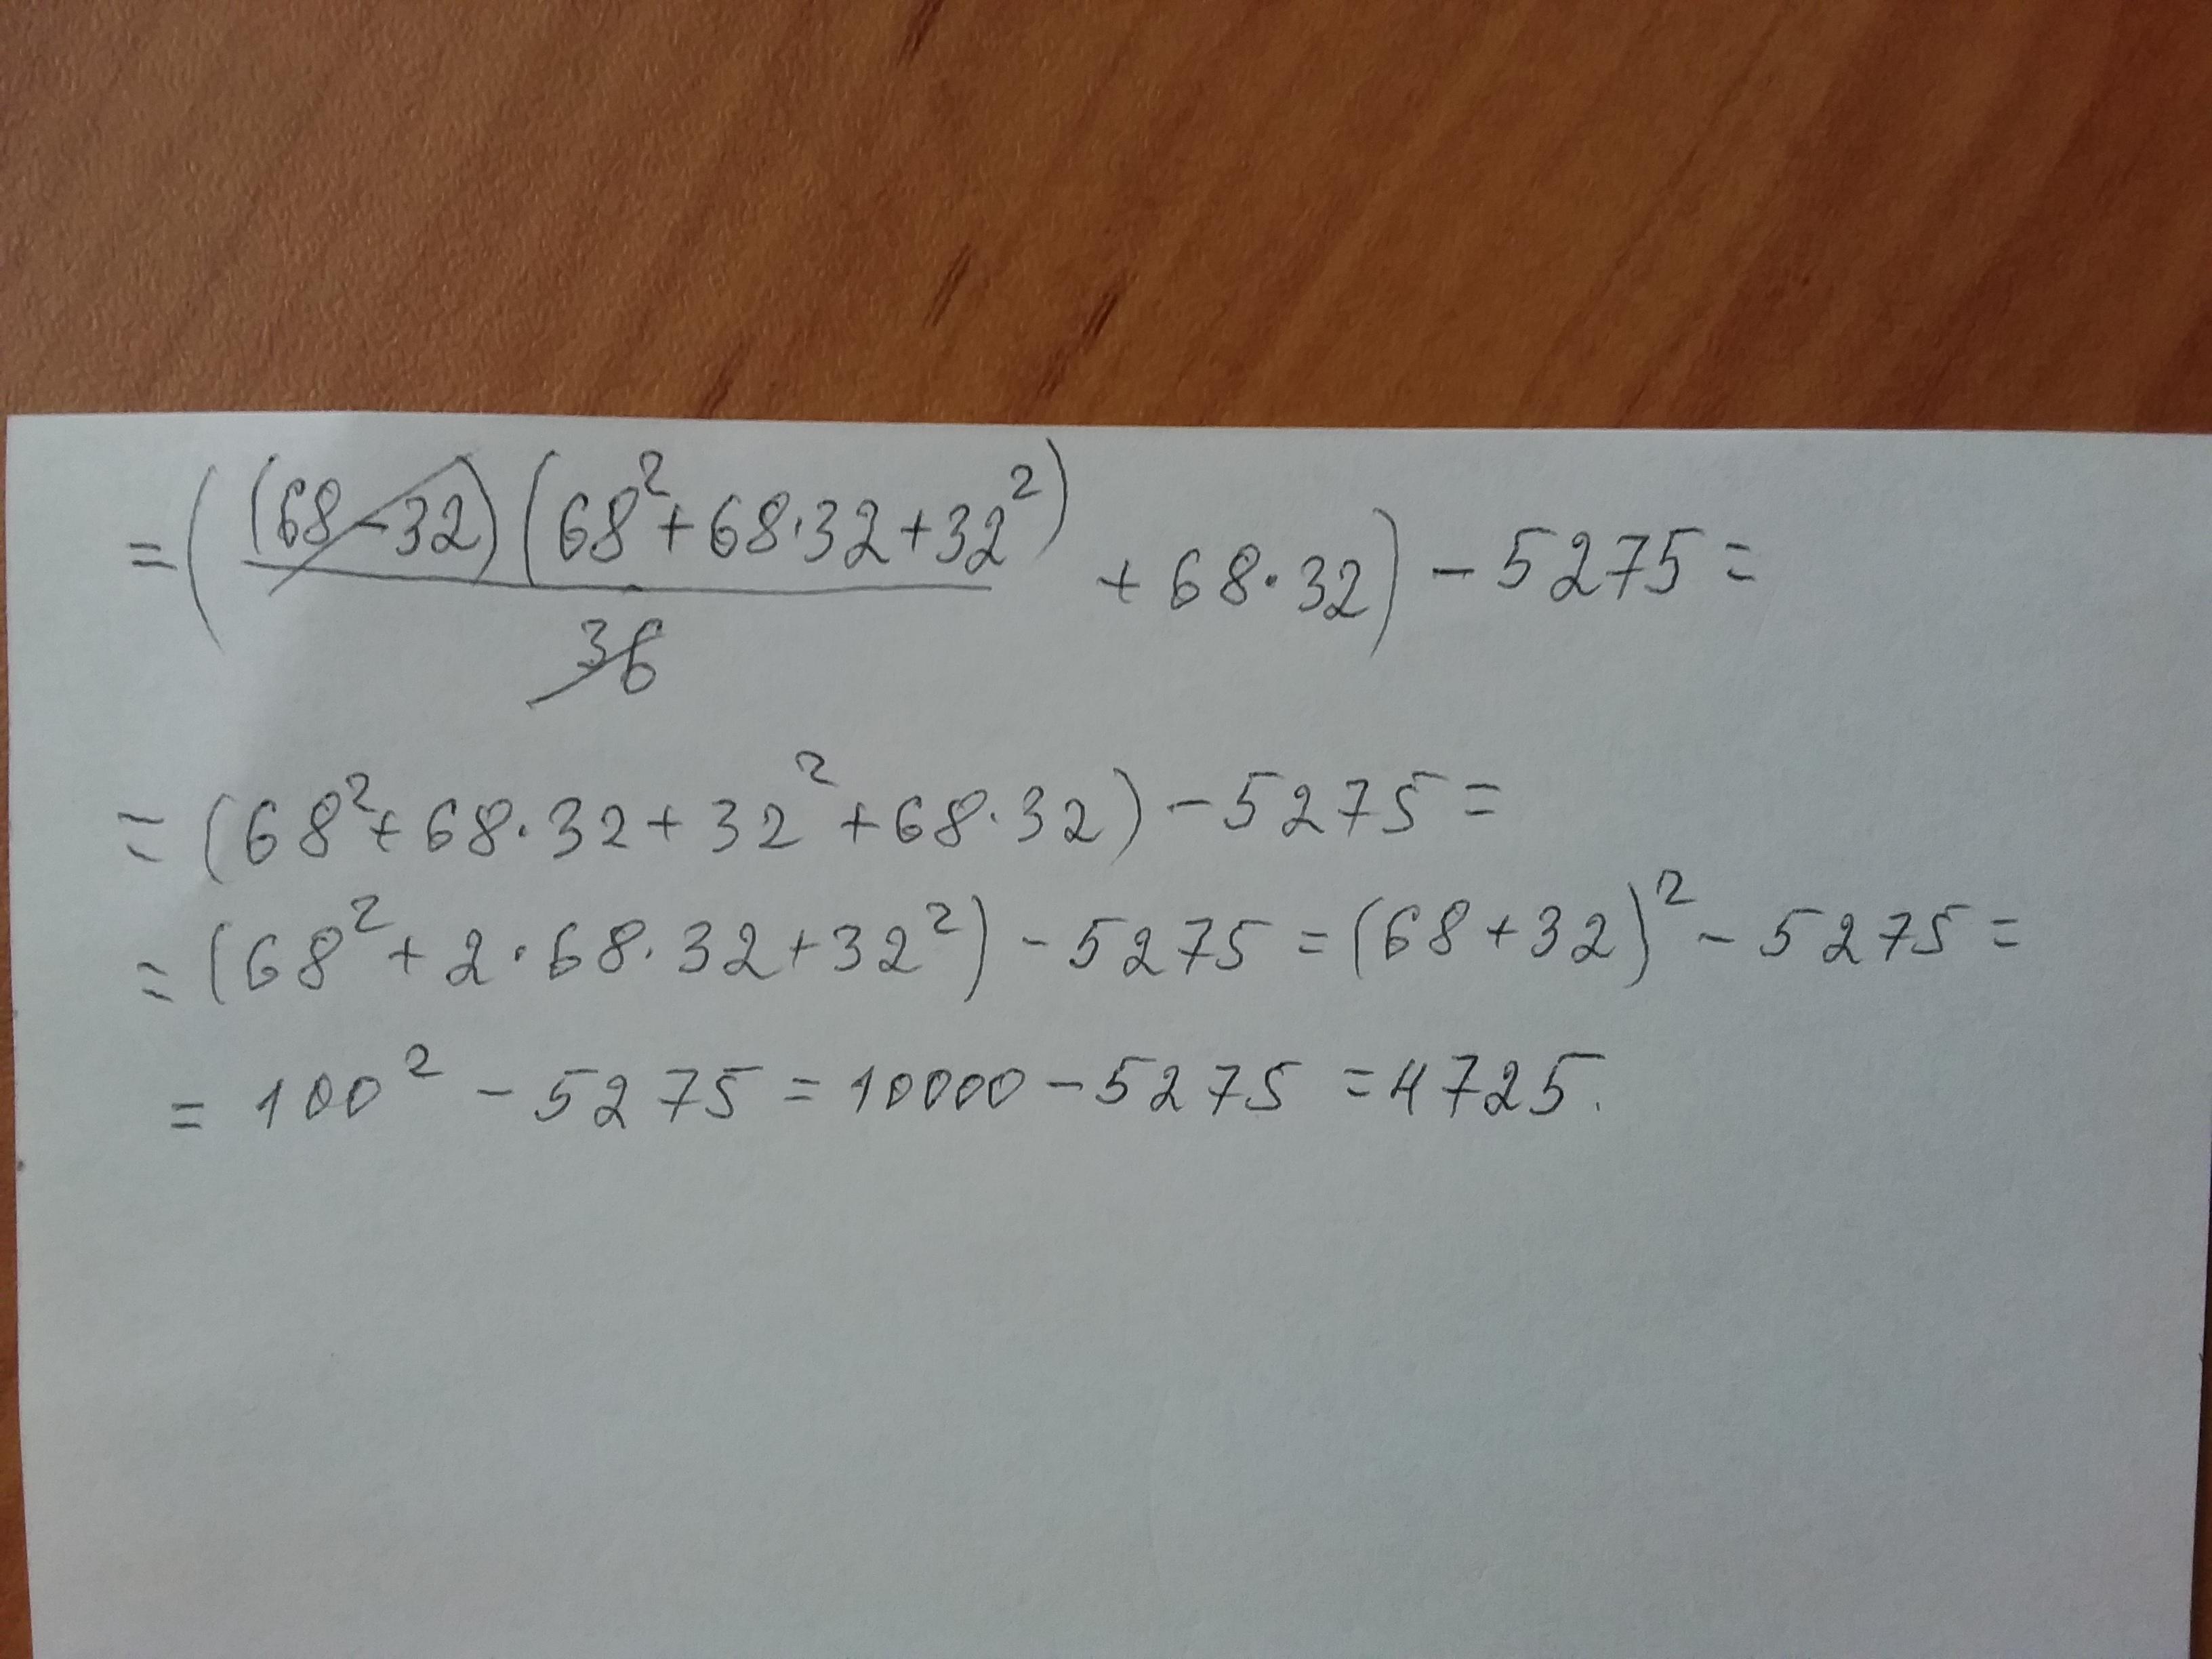 = ( (68-32)(68²+68·32+32²) / 36 + 68·32 ) - 5275 =
= (68²+68·32+32²+68·32) - 5275 =
= (68²+2·68·32+32²) - 5275 = (68+32)² - 5275 =
= 100² - 5275 = 10000 - 5275 = 4725.